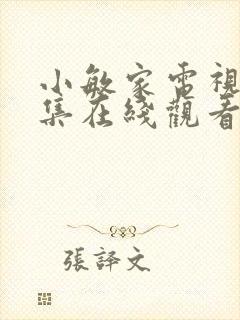 小敏家電視
集在綫觀看
張譯文